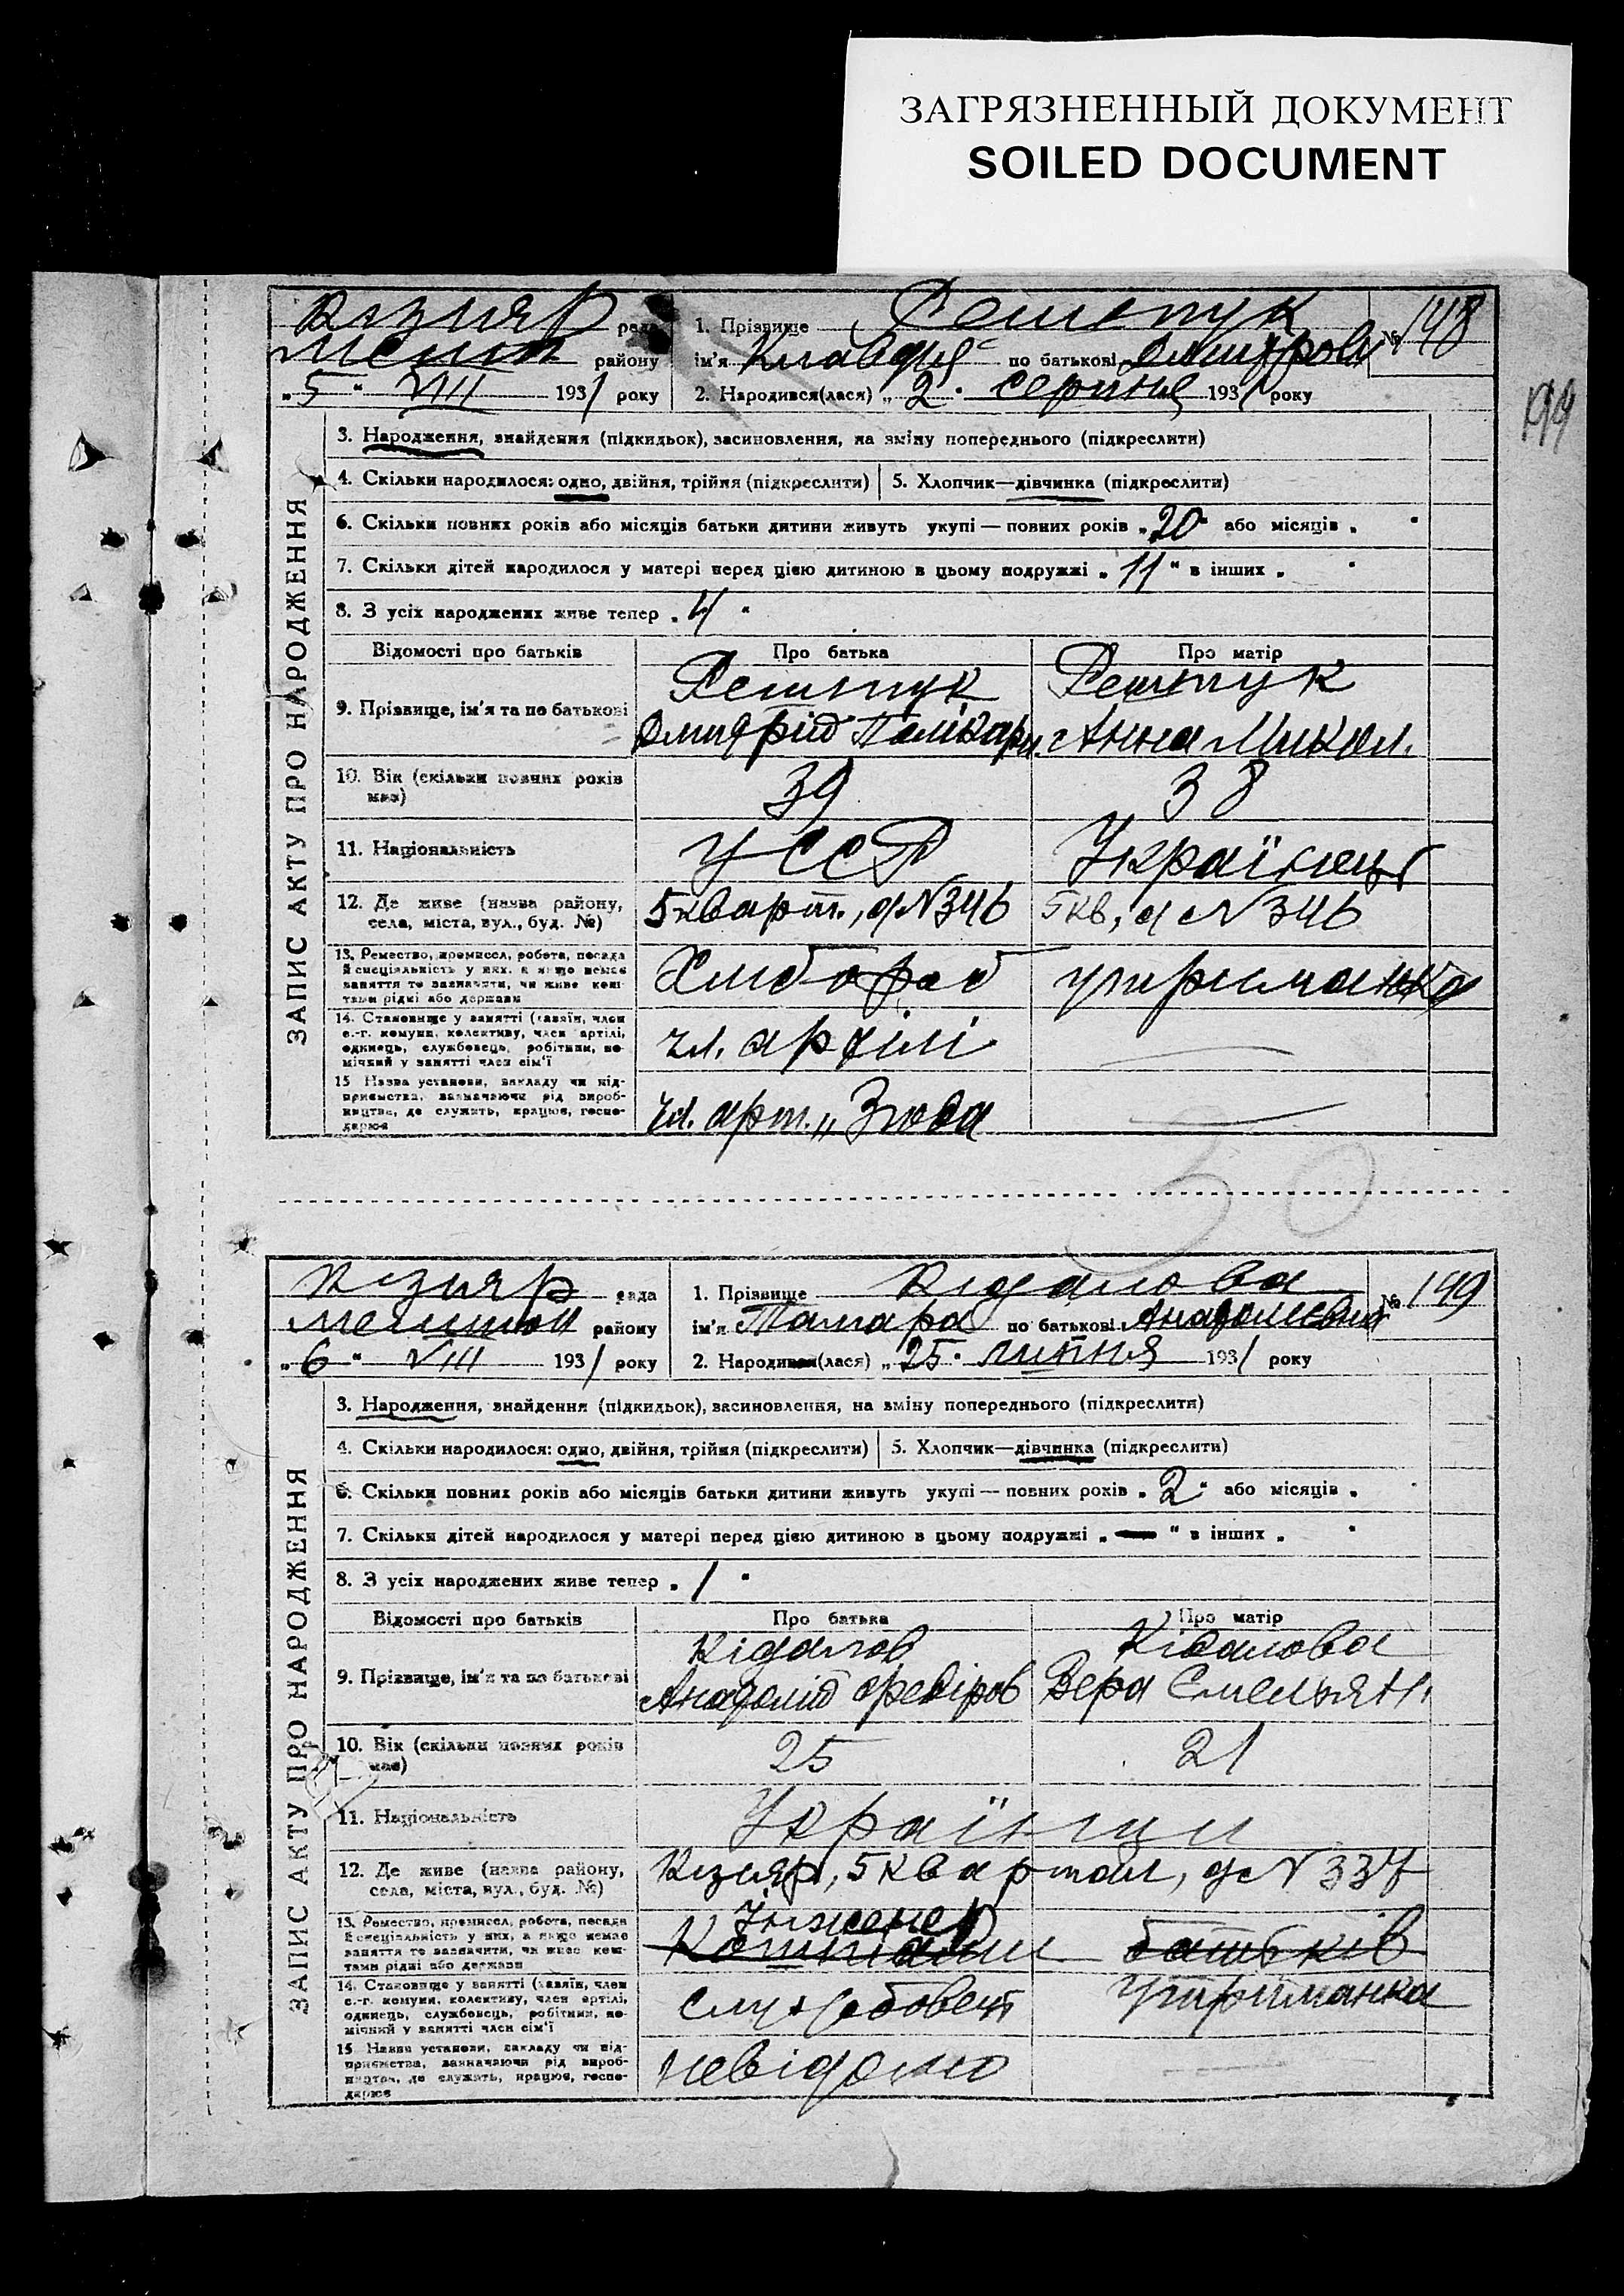 ЗАГРЯЗНЕННЫЙ ДОКУМЕНТ
SOILED DOCUMENT
Кізияр рада
Меліт району
„5“ VIII 1931 року
1. Прізвище Решетук
ім'я Клавдія по батькові Дмитров
№ 148
2. Народився(лася) „2“ серпня 1931 року
199
3. Народження, знайдення (підкидьок), засиновлення, на зміну попереднього (підкреслити)
4. Скільки народилося: одно, двійня, трійня (підкреслити) 5. Хлопчик—дівчинка (підкреслити)
6. Скільки повних років або місяців батьки дитини живуть укупі — повних років „20“ або місяців „ “
7. Скільки дітей народилося у матері перед цією дитиною в цьому подружжі „11“ в інших „ “
8. З усіх народжених живе тепер „4“
ЗАПИС АКТУ ПРО НАРОДЖЕННЯ
Відомості про батьків Про батька Про матір
9. Прізвище, ім'я та по батькові
Решетук Решетук
Дмитрій Полікарп. Анна Микол.
10. Вік (скільки повних років має) 39 38
11. Національність УССР Українець
12. Де живе (назва району, села, міста, вул., буд. №) 5 кварт., д №346 5 кв, д №346
13. Ремество, промисел, робота, посада й спеціальність у них, а якщо немає заняття то зазначити, чи живе коштами рідні або держави
Хлибороб утриманка
14. Становище у занятті (хазяїн, член с.-г. комуни, колективу, член артілі, одинець, службовець, робітник, помічний у занятті член сім'ї
чл. артілі
15 Назва установи, закладу чи підприємства, зазначаючи рід виробництва, де служить, працює, господарює
чл. арт. „Згода
50
Кізияр рада
Меліт району
„6“ VIII 1931 року
1. Прізвище Кідалова
ім'я Тамара по батькові Анатолієвна
№ 149
2. Народився(лася) „25“ липня 1931 року
3. Народження, знайдення (підкидьок), засиновлення, на зміну попереднього (підкреслити)
4. Скільки народилося: одно, двійня, трійня (підкреслити) 5. Хлопчик—дівчинка (підкреслити)
6. Скільки повних років або місяців батьки дитини живуть укупі — повних років „2“ або місяців „ “
7. Скільки дітей народилося у матері перед цією дитиною в цьому подружжі „—“ в інших „ “
8. З усіх народжених живе тепер „1“
ЗАПИС АКТУ ПРО НАРОДЖЕННЯ
Відомості про батьків Про батька Про матір
9. Прізвище, ім'я та по батькові
Кідалов Кідалова
Анатолій Федіров Вера Емельян.
10. Вік (скільки повних років має) 25 21
11. Національність Українци
12. Де живе (назва району, села, міста, вул., буд. №) Кізияр, 5 квартал, д №337
13. Ремество, промисел, робота, посада й спеціальність у них, а якщо немає заняття то зазначити, чи живе коштами рідні або держави
Інженер
Коштами батьків
14. Становище у занятті (хазяїн, член с.-г. комуни, колективу, член артілі, одинець, службовець, робітник, помічний у занятті член сім'ї
службовець Утриманка
15 Назва установи, закладу чи підприємства, зазначаючи рід виробництва, де служить, працює, господарює
невідомо